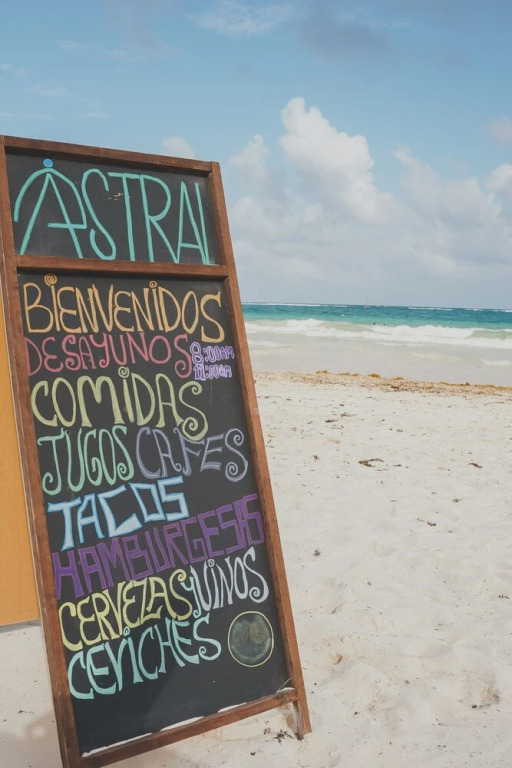 ASTRAL
BIENVENIDOS
DESAYUNOS 8:00AM
11:00AM
COMIDAS
JUGOS CAFES
TACOS
HAMBURGESAS
CERVEZAS Y VINOS
CEVICHES